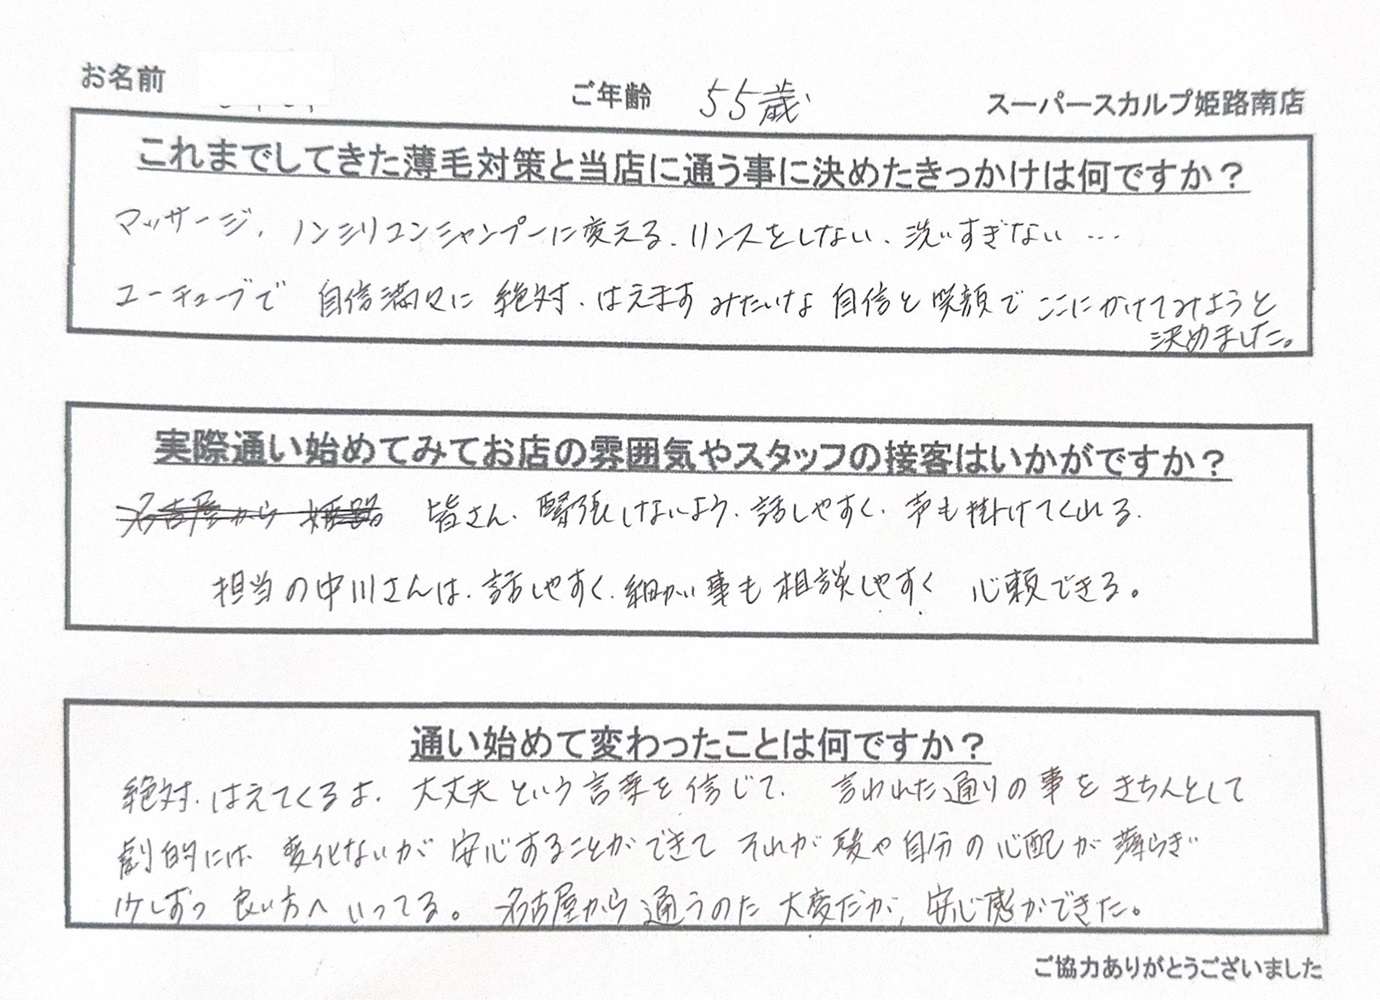 お名前 ご年齢 55歳 スーパースカルプ姫路南店
これまでしてきた薄毛対策と当店に通う事に決めたきっかけは何ですか？
マッサージ、ノンシリコンシャンプーに変える、リンスをしない、洗いすぎない…
ユーチューブで 自信満足に 絶対、はえます みたいな 自信と笑顔で ここにかけてみようと
決めました。
実際通い始めてみてお店の雰囲気やスタッフの接客はいかがですか？
名古屋から 姫路 皆さん、緊張しないよう、話しやすく、声も掛けてくれる、
担当の中川さんは、話しやすく、細かい事も相談しやすく 心頼できる。
通い始めて変わったことは何ですか？
絶対、はえてくるよ、大丈夫という言葉を信じて、言われた通りの事をきちんとして
劇的には、変化ないが 安心することができて それが髪や自分の心配が薄らぎ
少しずつ 良い方へ いってる。名古屋から通うのた 大変だが、安心感ができた。
ご協力ありがとうございました